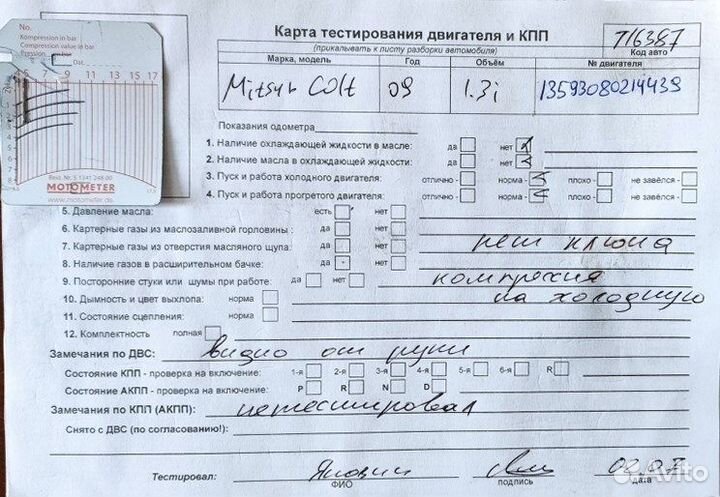 No.
Kompression in bar
Compression value in bar
Pression en bar
Dat.
5 7 9 11 13 15 17
Best. Nr. S 1341 248 00
MOTOMETER
www.motometer.de
Карта тестирования двигателя и КПП
(прикалывать к листу разборки автомобиля)
T16387
Код авто
Марка, модель Год Объём № двигателя
Mitsub Colt 09 1.3i 13593080214439
Показания одометра
1. Наличие охлаждающей жидкости в масле: да нет
2. Наличие масла в охлаждающей жидкости: да нет
3. Пуск и работа холодного двигателя: отлично - норма - плохо - не завёлся -
4. Пуск и работа прогретого двигателя: отлично - норма - плохо - не завёлся -
5. Давление масла: есть нет
6. Картерные газы из маслозаливной горловины : да нет
7. Картерные газы из отверстия масляного щупа: да нет
нет ключа
8. Наличие газов в расширительном бачке: да нет
9. Посторонние стуки или шумы при работе: да нет
компрессия
10. Дымность и цвет выхлопа: норма
на холодную
11. Состояние сцепления: норма
12. Комплектность полная
Замечания по ДВС: видно от руки
Состояние КПП - проверка на включение: 1-я 2-я 3-я 4-я 5-я 6-я R
Состояние АКПП - проверка на включение: P R N D
Замечания по КПП (АКПП): не тестировал
Снято с ДВС (по согласованию!):
Тестировал:
ФИО подпись дата
Avito